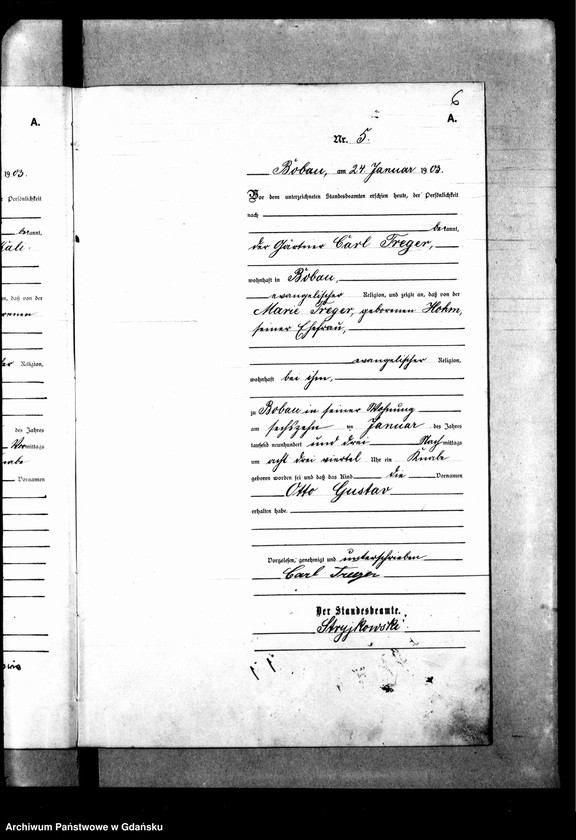 6
A.
A.
Nr. 5.
Bobau, am 24. Januar 1903.
1903.
Vor dem unterzeichneten Standesbeamten erschien heute, der Persönlichkeit
Persönlichkeit
nach
bekannt,
bekannt,
der Gärtner Carl Treger,
wohnhaft in Bobau,
evangelischer Religion, und zeigte an, daß von der
an, daß von der
Marie Treger, geborenen Hohm,
seiner Ehefrau,
evangelischer Religion,
Religion,
wohnhaft bei ihm,
zu Bobau in seiner Wohnung
am sechszehn ten Januar des Jahres
des Jahres
tausend neunhundert und drei Nachmittags
Vormittags
um acht drei viertel Uhr ein Knabe
geboren worden sei und daß das Kind die Vornamen
Vornamen
Otto Gustav
erhalten habe.
Vorgelesen, genehmigt und unterschrieben
Carl Treger
Der Standesbeamte.
Stryjkowski
Archiwum Państwowe w Gdańsku